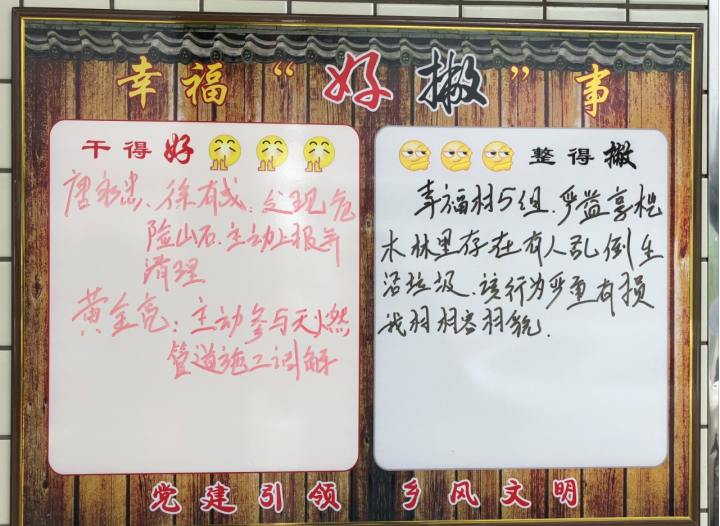 幸福“好撇”事
干得好
唐永忠、徐有成：发现危
险山石、主动上报并
清理
黄金亮：主动参与天燃
管道施工调解
整得撇
幸福村5组、严益享桤
木林里存在有人乱倒生
活垃圾、该行为严重有损
我村村容村貌.
党建引领 乡风文明